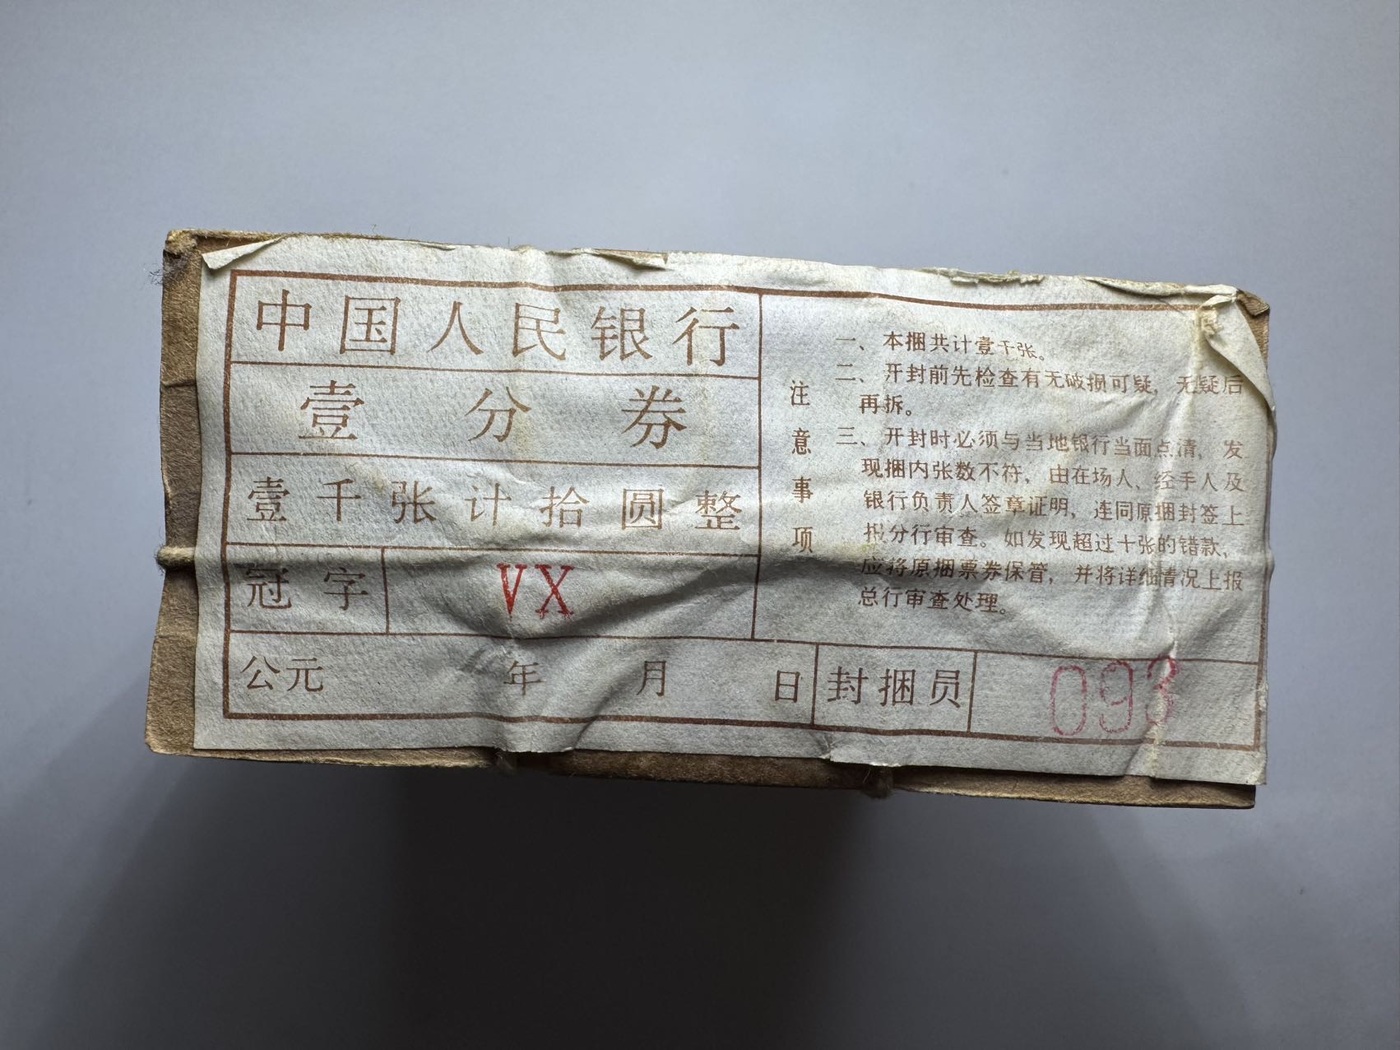 中国人民银行
壹分券
壹千张计拾圆整
冠字 VX
公元 年 月 日 封捆员 093
注意事项
一、本捆共计壹千张。
二、开封前先检查有无破损可疑，无疑后
再拆。
三、开封时必须与当地银行当面点清，发
现捆内张数不符，由在场人、经手人及
银行负责人签章证明，连同原捆封签上
报分行审查。如发现超过十张的错款，
应将原捆票券保管，并将详细情况上报
总行审查处理。